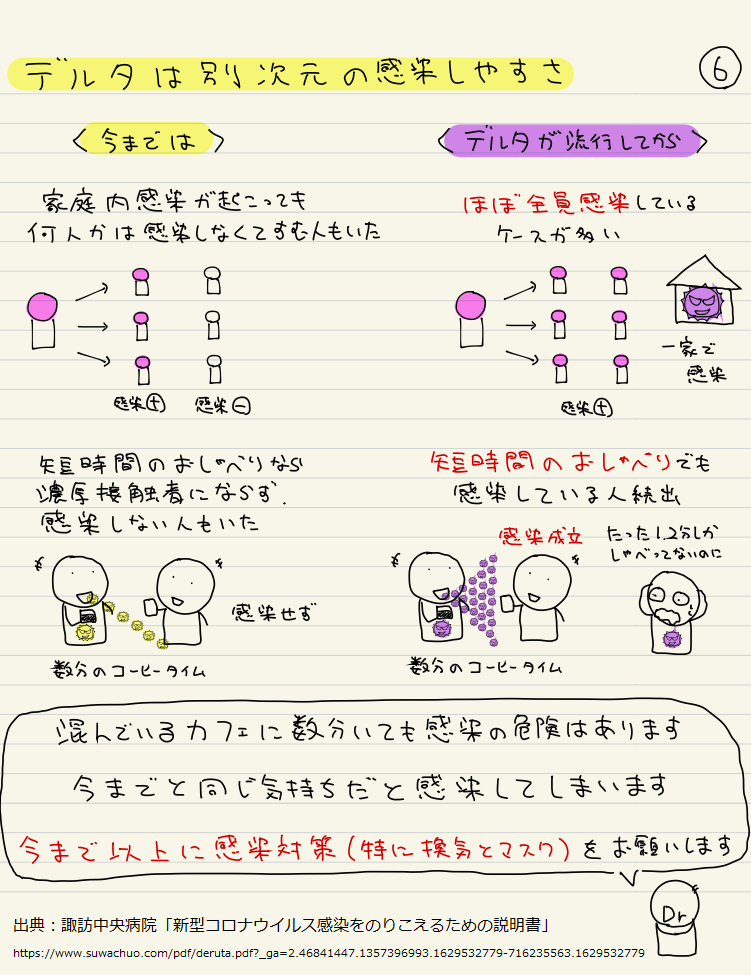 デルタは別次元の感染しやすさ
6
今までは
デルタが流行してから
家庭内感染が起こっても
何人かは感染しなくてすむ人もいた
ほぼ全員感染している
ケースが多い
一家で
感染
感染+
感染−
感染+
短時間のおしゃべりなら
濃厚接触者にならず、
感染しない人もいた
短時間のおしゃべりでも
感染している人続出
感染成立
たった1.2分しか
しゃべってないのに
感染せず
数分のコーヒータイム
数分のコーヒータイム
混んでいるカフェに数分いても感染の危険はあります
今までと同じ気持ちだと感染してしまいます
今まで以上に感染対策(特に換気とマスク)をお願いします
Dr
出典：諏訪中央病院「新型コロナウイルス感染をのりこえるための説明書」
https://www.suwachuo.com/pdf/deruta.pdf?_ga=2.46841447.1357396993.1629532779-716235563.1629532779